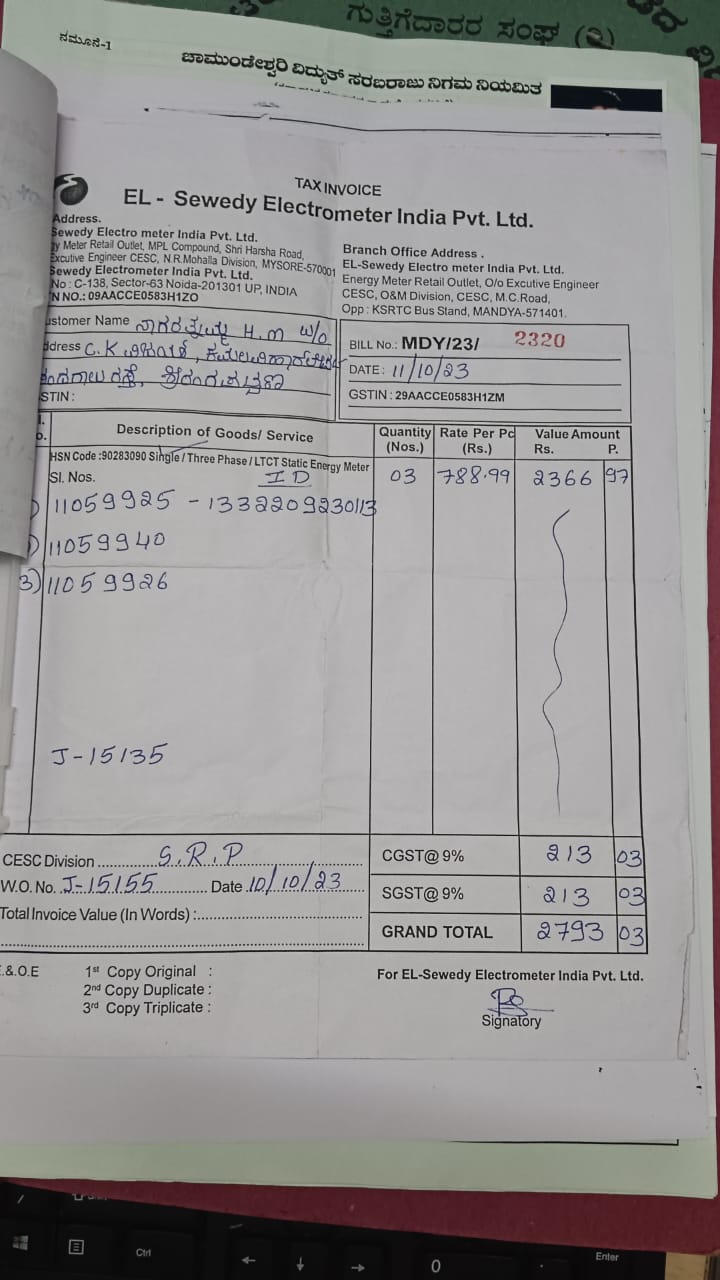 ಗುತ್ತಿಗೆದಾರರ ಸಂಘ (೨)
ನಮೂನೆ-1
ಚಾಮುಂಡೇಶ್ವರಿ ವಿದ್ಯುತ್ ಸರಬರಾಜು ನಿಗಮ ನಿಯಮಿತ
TAX INVOICE
EL - Sewedy Electrometer India Pvt. Ltd.
Address.
Sewedy Electro meter India Pvt. Ltd.
Meter Retail Outlet, MPL Compound, Shri Harsha Road,
Excutive Engineer CESC, N.R.Mohalla Division, MYSORE-570001
Sewedy Electrometer India Pvt. Ltd.
No : C-138, Sector-63 Noida-201301 UP, INDIA
N NO.: 09AACCE0583H1ZO
Branch Office Address .
EL-Sewedy Electro meter India Pvt. Ltd.
Energy Meter Retail Outlet, O/o Excutive Engineer
CESC, O&M Division, CESC, M.C.Road,
Opp : KSRTC Bus Stand, MANDYA-571401.
ustomer Name H.M W/o
ddress C.K
STIN :
BILL No.: MDY/23/ 2320
DATE : 11/10/23
GSTIN : 29AACCE0583H1ZM
Description of Goods/ Service Quantity (Nos.) Rate Per Pc (Rs.) Value Amount Rs. P.
HSN Code :90283090 Single / Three Phase / LTCT Static Energy Meter
Sl. Nos. ID 03 788.99 2366 97
11059925 - 1332209230113
11059940
3) 11059926
J-15135
CESC Division S.R.P CGST@ 9% 213 03
W.O. No. J-15155 Date 10/10/23 SGST@ 9% 213 03
Total Invoice Value (In Words) : GRAND TOTAL 2793 03
.&.O.E 1st Copy Original :
2nd Copy Duplicate :
3rd Copy Triplicate :
For EL-Sewedy Electrometer India Pvt. Ltd.
Signatory
Ctrl
0
Enter